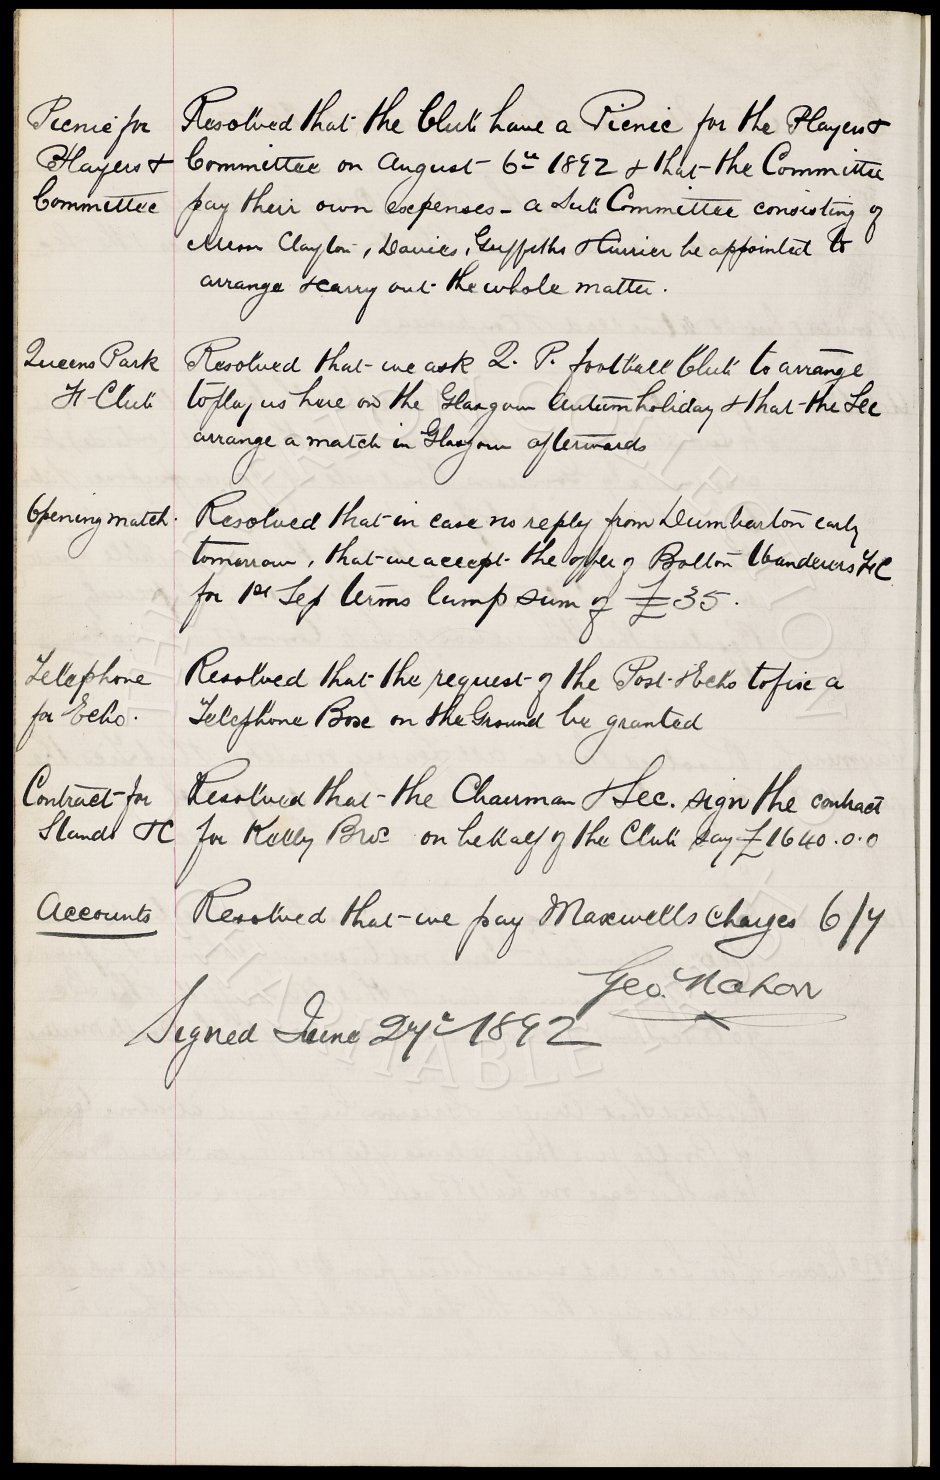 Picnic for
Players &
Committee
Resolved that the Club have a Picnic for the Players &
Committee on August 6th 1892 & that the Committee
pay their own expenses - a Sub Committee consisting of
Messrs Clayton, Davies, Griffiths & Currier be appointed to
arrange & carry out the whole matter.
Queens Park
F Club
Resolved that we ask Q. P. football Club to arrange
to play us here on the Glasgow Autum holiday & that the Sec
arrange a match in Glasgow afterwards
Opening match.
Resolved that in case no reply from Dumbarton early
tomorrow, that we accept the offer of Bolton Wanderers FC
for 1st Sep terms lump sum of £35.
Telephone
for Echo.
Resolved that the request of the Post & Echo to fix a
Telephone Box on the Ground be granted
Contract for
Stands &C
Resolved that the Chairman & Sec. sign the contract
for Kelly Bros on behalf of the Club say £1640.0.0
Accounts
Resolved that we pay Maxwells charges 6/7
Geo. Mahon
Signed June 27th 1892
EVERTON COLLECTION
CHARITABLE TRUST